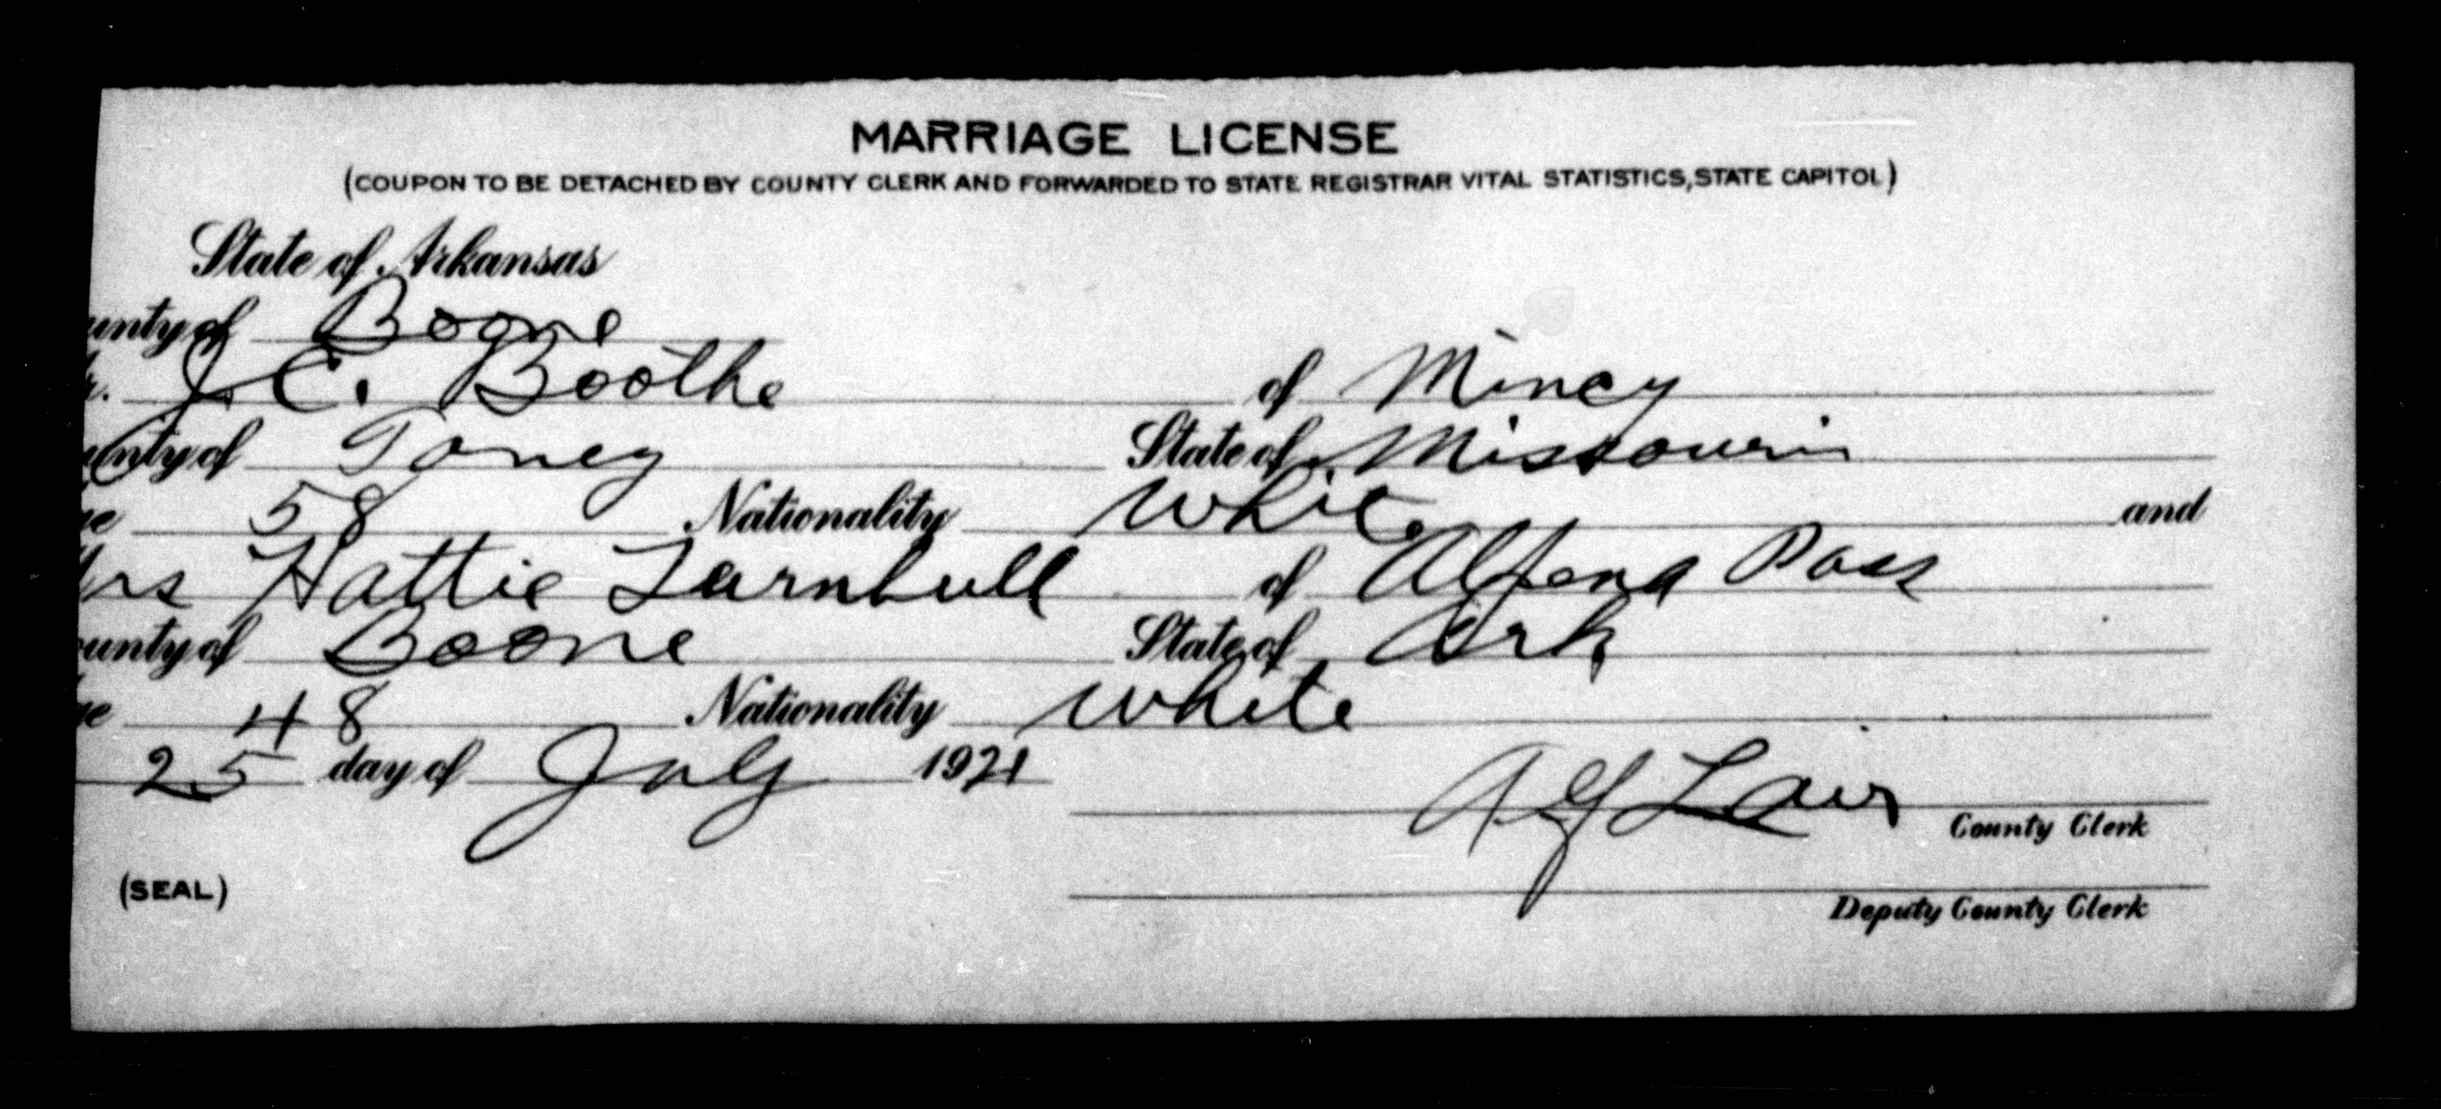 MARRIAGE LICENSE
(COUPON TO BE DETACHED BY COUNTY CLERK AND FORWARDED TO STATE REGISTRAR VITAL STATISTICS, STATE CAPITOL)
State of Arkansas
unty of Boone
r. J. C. Boothe of Mincy
unty of Toney State of Missouri
ge 58 Nationality White and
Mrs Hattie Turnbull of Alpena Pass
ounty of Boone State of Ark
ge 48 Nationality White
25 day of July 1921
Lair County Clerk
(SEAL)
Deputy County Clerk